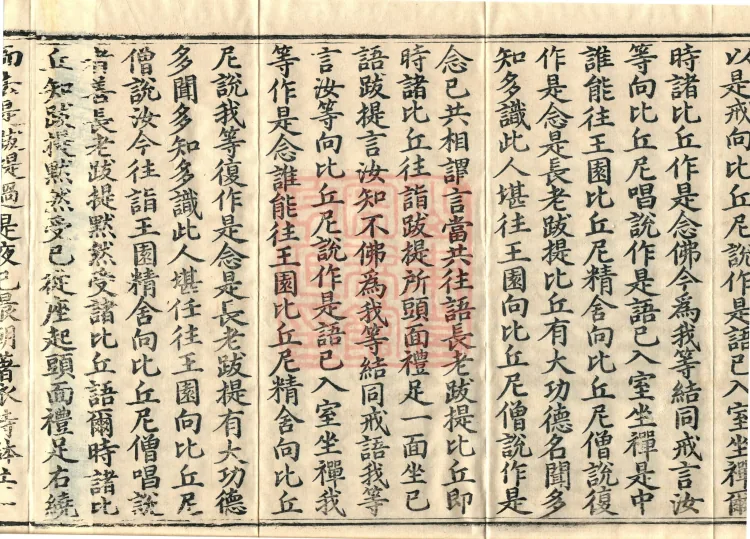 以是戒向比丘尼說作是語已入室坐禪爾
時諸比丘作是念佛今爲我等結同戒言汝
等向比丘尼唱說作是語已入室坐禪是中
誰能往王園比丘尼精舍向比丘尼僧說復
作是念是長老跋提比丘有大功德名聞多
知多識此人堪往王園向比丘尼僧說作是
念已共相謂言當共往語長老跋提比丘即
時諸比丘往詣跋提所頭面禮足一面坐已
語跋提言汝知不佛爲我等結同戒語我等
言汝等向比丘尼說作是語已入室坐禪我
等作是念誰能往王園比丘尼精舍向比丘
尼說我等復作是念是長老跋提有大功德
多聞多知多識此人堪任往王園向比丘尼
僧說汝今往詣王園精舍向比丘尼僧唱說
者善長老跋提黙然受諸比丘語爾時諸比
丘知跋提黙然受已從座起頭面禮足右繞
而去是跋提過是夜已晨朝著衣持鉢